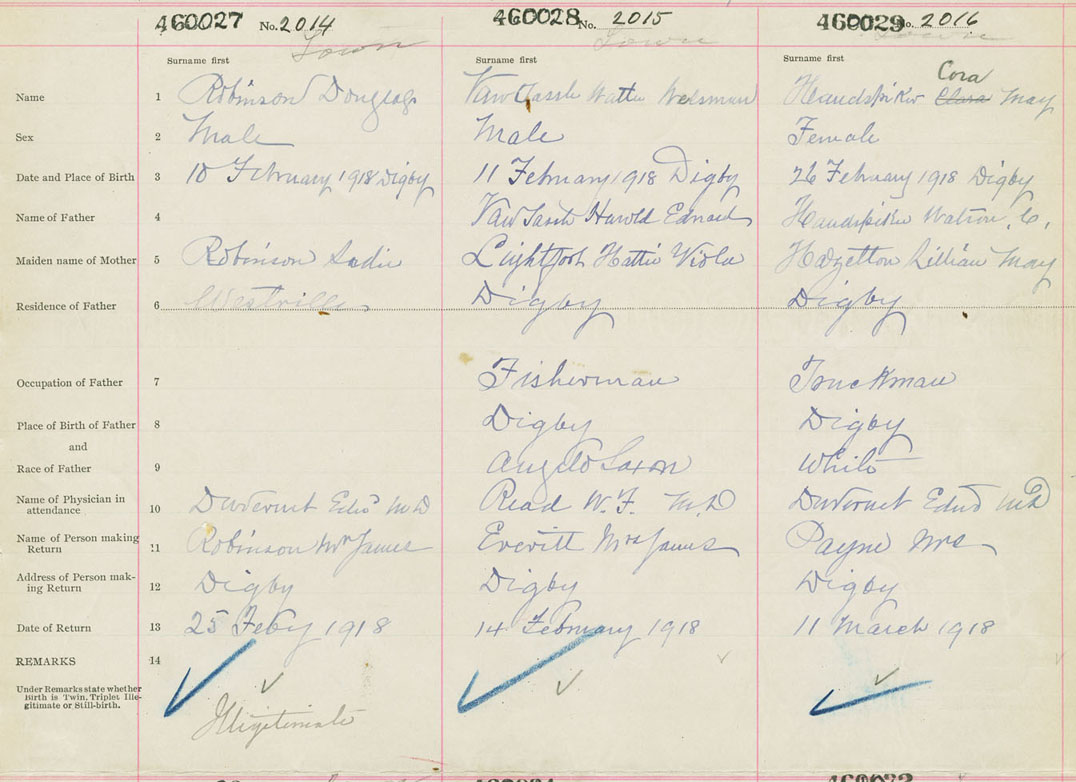 460027 No. 2014 460028 No. 2015 460029 No. 2016
Town Town Town
Surname first Surname first Surname first
Name 1 Robinson Douglas Watter Cora
Handspiker Clara May
Sex 2 Male Male Female
Date and Place of Birth 3 10 February 1918 Digby 11 February 1918 Digby 26 February 1918 Digby
Name of Father 4 Harold Edward Handspiker Watson
Maiden name of Mother 5 Robinson Sadie Lightfoot Hattie Viola Hazelton Lillian May
Residence of Father 6 Westville Digby Digby
Occupation of Father 7 Fisherman Truckman
Place of Birth of Father 8 Digby Digby
and
Race of Father 9 Anglo Saxon White
Name of Physician in
attendance 10 DuVernet Edw M D Read W. F. M.D DuVernet Edwd M D
Name of Person making
Return 11 Robinson Mrs James Everitt Mrs James Payne Mrs
Address of Person mak-
ing Return 12 Digby Digby Digby
Date of Return 13 25 Feby 1918 14 February 1918 11 March 1918
REMARKS 14
Under Remarks state whether
Birth is Twin, Triplet Ille-
gitimate or Still-birth.
Illegitimate